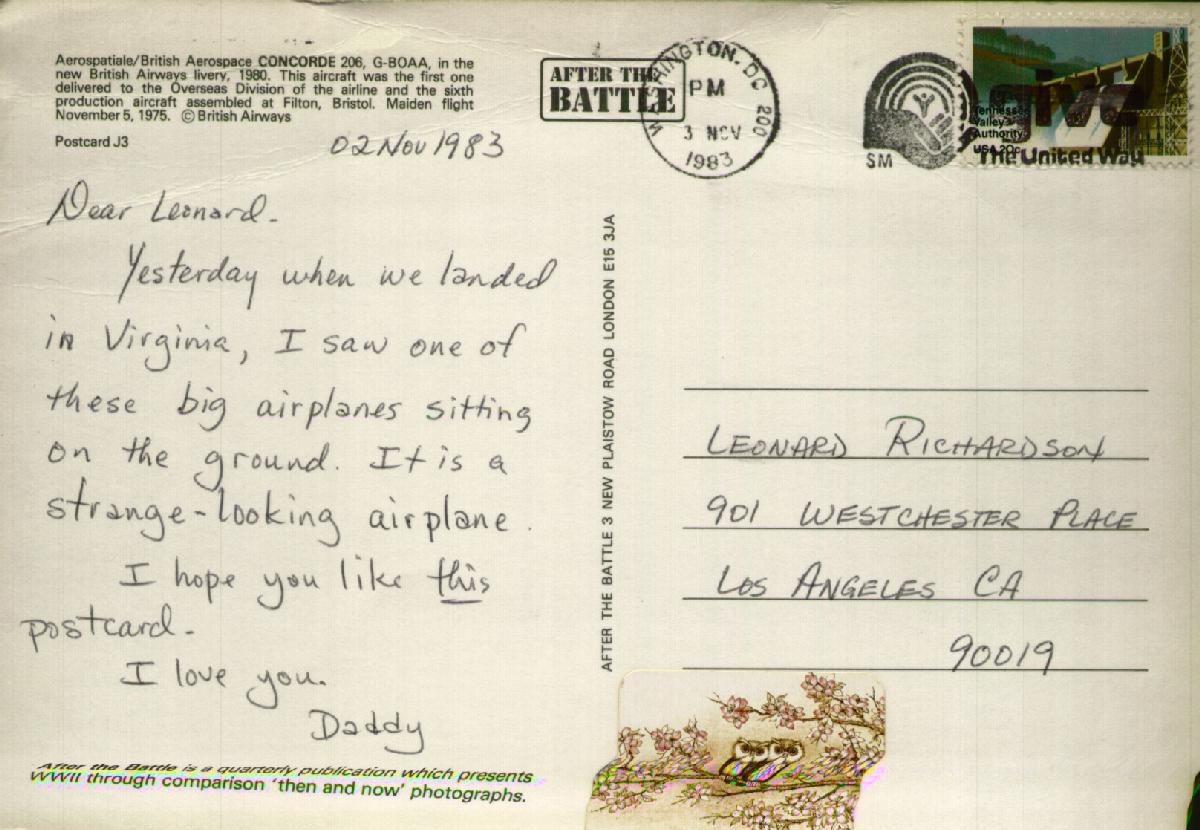 Aerospatiale/British Aerospace CONCORDE 206, G-BOAA, in the
new British Airways livery, 1980. This aircraft was the first one
delivered to the Overseas Division of the airline and the sixth
production aircraft assembled at Filton, Bristol. Maiden flight
November 5, 1975. © British Airways
Postcard J3
02 Nov 1983
Dear Leonard.
Yesterday when we landed
in Virginia, I saw one of
these big airplanes sitting
on the ground. It is a
strange-looking airplane.
I hope you like this
postcard.
I love you.
Daddy
After the Battle is a quarterly publication which presents
WWII through comparison 'then and now' photographs.
AFTER THE
BATTLE
AFTER THE BATTLE 3 NEW PLAISTOW ROAD LONDON E15 3JA
WASHINGTON, DC 200
PM
3 NOV
1983
SM
Tennessee
Valley
Authority
USA 20c
The United Way
LEONARD RICHARDSON
901 WESTCHESTER PLACE
LOS ANGELES CA
90019